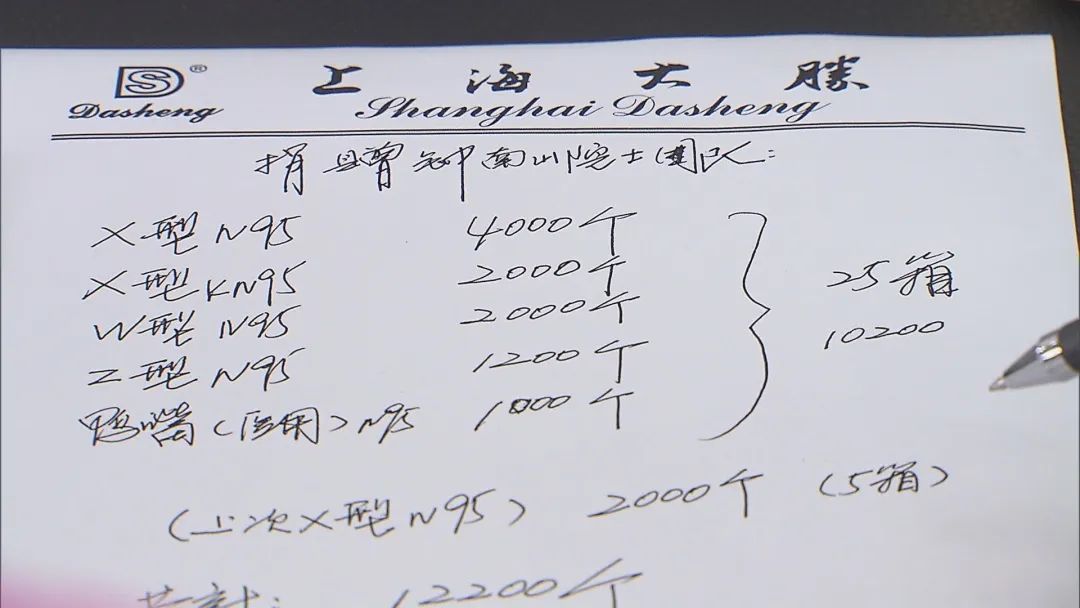 DS® 上海大勝
Dasheng Shanghai Dasheng
捐赠钟南山院士團队:
X型 N95 4000个
X型 KN95 2000个
W型 N95 2000个
Z型 N95 1200个
鸭嘴(医用)N95 1000个
25箱
10200
(上次X型N95) 2000个 (5箱)
共計: 12200个